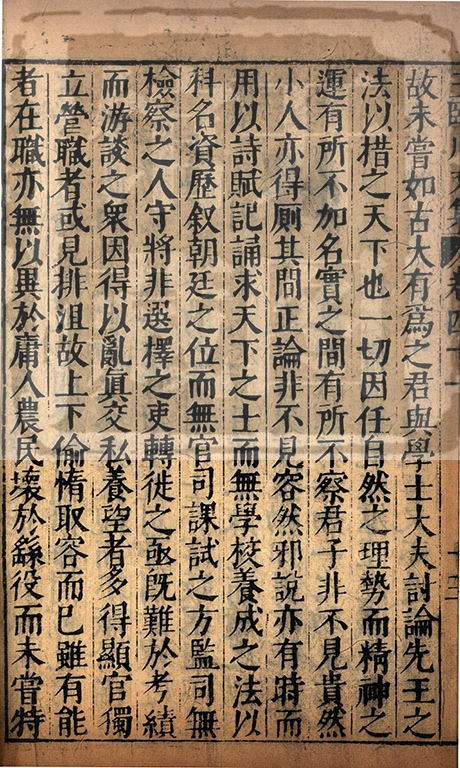 故未嘗如古大有爲之君與學士大夫討論先王之
法以措之天下也一切因任自然之理勢而精神之
運有所不加名實之間有所不察君子非不見貴然
小人亦得厠其間正論非不見容然邪說亦有時而
用以詩賦記誦求天下之士而無學校養成之法以
科名資歷叙朝廷之位而無官司課試之方監司無
檢察之人守將非選擇之吏轉徙之亟旣難於考績
而游談之衆因得以亂眞交私養望者多得顯官獨
立營職者或見排沮故上下偷惰取容而已雖有能
者在職亦無以異於庸人農民壞於繇役而未嘗特